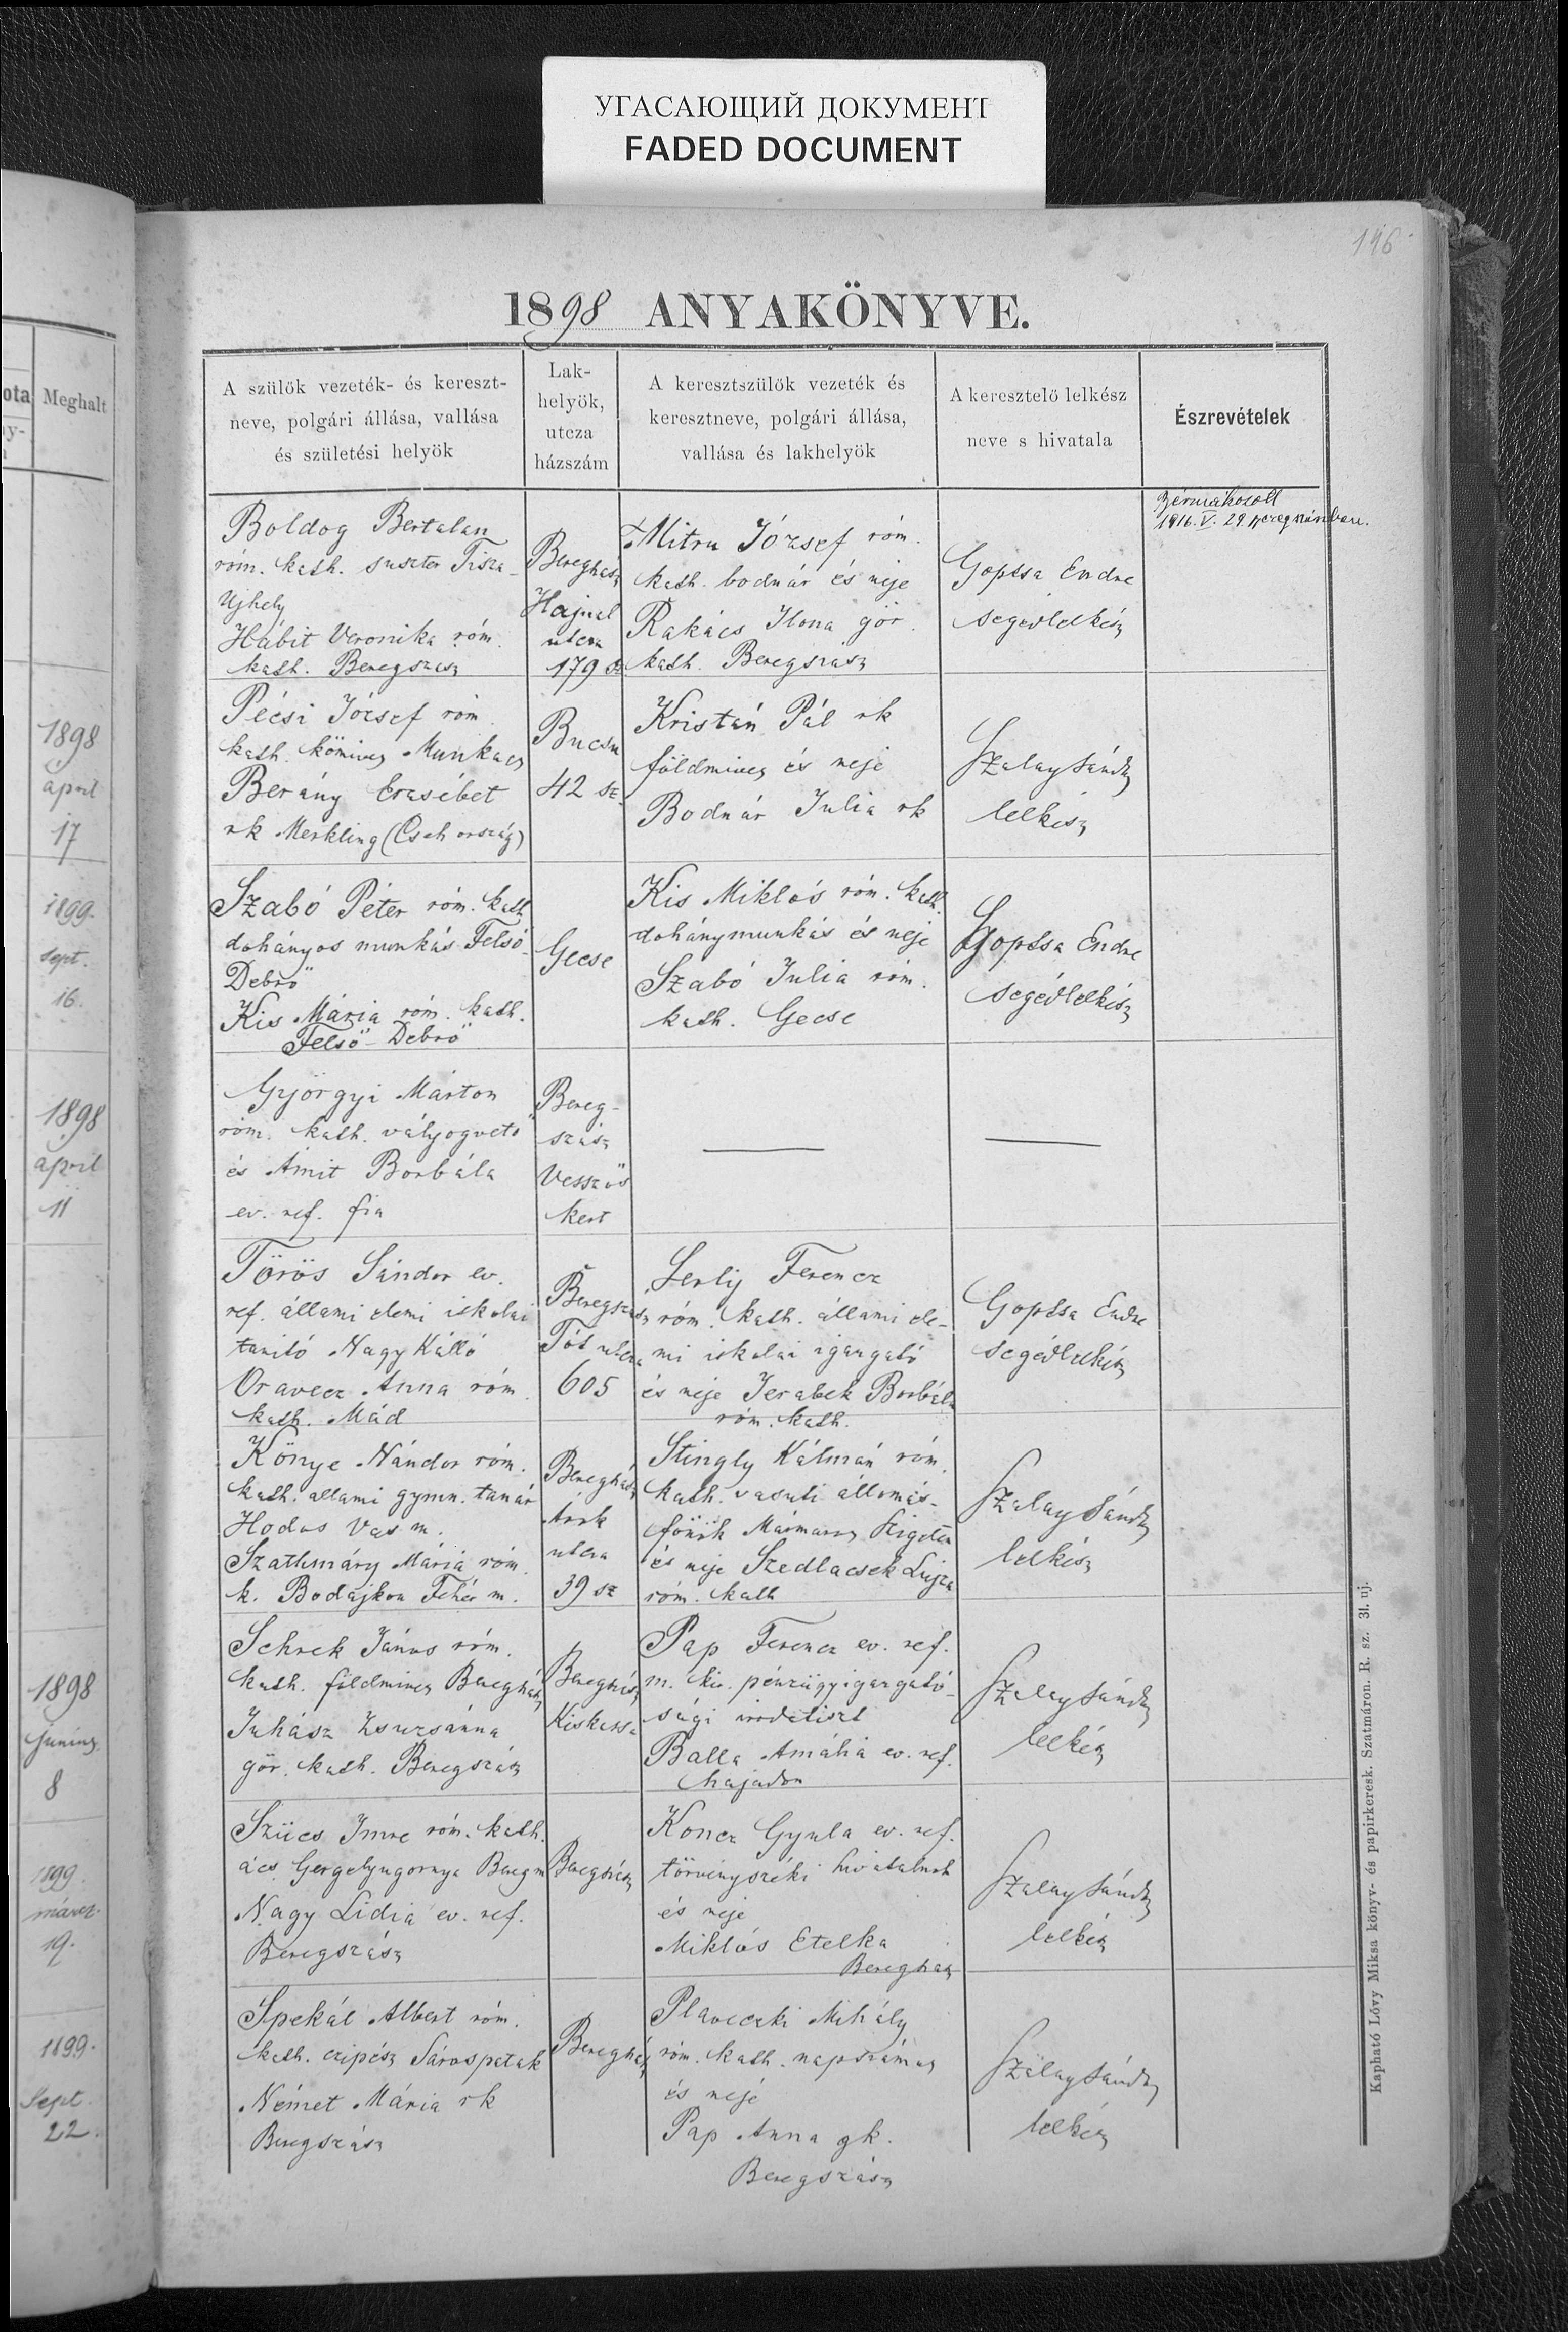 УГАСАЮЩИЙ ДОКУМЕНТ
FADED DOCUMENT
146
1898 ANYAKÖNYVE.
ota
Meghalt
A szülök vezeték- és kereszt-
neve, polgári állása, vallása
és születési helyök
Lak-
helyök,
utcza
házszám
A keresztszülök vezeték és
keresztneve, polgári állása,
vallása és lakhelyök
A keresztelö lelkész
neve s hivatala
Észrevételek
Boldog Bertalan
róm. kath. suszter Tisza-
Ujhely
Hábit Veronika róm.
kath. Beregszász
Beregszász
Hajnal
utcza
179 sz.
Mitru József róm.
kath. bodnár és neje
Rakács Ilona gör.
kath. Beregszász
Gopcsa Endre
segédlelkész
Bérmálkozott
1916. V. 29 Beregszászban.
1898
april
17
Pécsi József róm.
kath. kömives Munkacs
Berány Erzsébet
rk Merkling (Cseh ország)
Bucsu
42 sz.
Kristán Pál rk
földmives és neje
Bodnár Julia rk
Szalay Sándor
lelkész
1899.
sept.
16.
Szabó Péter róm. kath
dohányos munkás Felsö-
Debrö
Kis Mária róm. kath.
Felsö-Debrö
Gecse
Kis Miklós róm. kath.
dohánymunkás és neje
Szabó Julia róm.
kath. Gecse
Gopcsa Endre
segédlelkész
1898
april
11
Györgyi Márton
róm. kath. vályogvetö
és Ámit Borbála
ev. ref. fia
Bereg-
szász
Vesszös
kert
Törös Sándor ev.
ref. állami elemi iskolai
tanító Nagy Kálló
Oravecz Anna róm.
kath. Mád
Beregszász
Tót utcza
605
Serly Ferencz
róm. kath. állami ele-
mi iskolai igazgató
és neje Jerabek Borbála
róm. kath.
Gopcsa Endre
segédlelkész
Könye Nándor róm.
kath. állami gymn. tanár
Hodos Vas m.
Szathmáry Mária róm.
k. Bodajkon Fehér m.
Beregszász
Árok
utcza
39 sz
Stingly Kálmán róm.
kath. vasuti állomás-
fönök Mármaros Szigeten
és neje Szedlacsek Lujza
róm. kath
Szalay Sándor
lelkész
1898
junius
8
Schrek János róm.
kath. földmives Beregszász
Juhász Zsuzsánna
gör. kath. Beregszász
Beregszász
Kiskassa
Pap Ferencz ev. ref.
m. kir. pénzügyigazgató-
sági irodatiszt
Balla Amália ev. ref.
hajadon
Szalay Sándor
lelkész
1899.
márcz.
19.
Szücs Imre róm. kath.
ács Gergelyugornya Bereg m
Nagy Lidia ev. ref.
Beregszász
Beregszász
Koncz Gyula ev. ref.
törvényszéki hivatalnok
és neje
Miklós Etelka
Beregszász
Szalay Sándor
lelkész
1899.
Sept.
22.
Spekál Albert róm.
kath. czipész Sárospatak
Német Mária rk
Beregszász
Beregszász
Plaveczki Mihály
róm. kath. napszámos
és neje
Pap Anna gk.
Beregszász
Szalay Sándor
lelkész
Kapható Lövy Miksa könyv- és papirkeresk. Szatmáron. R. sz. 31. uj.